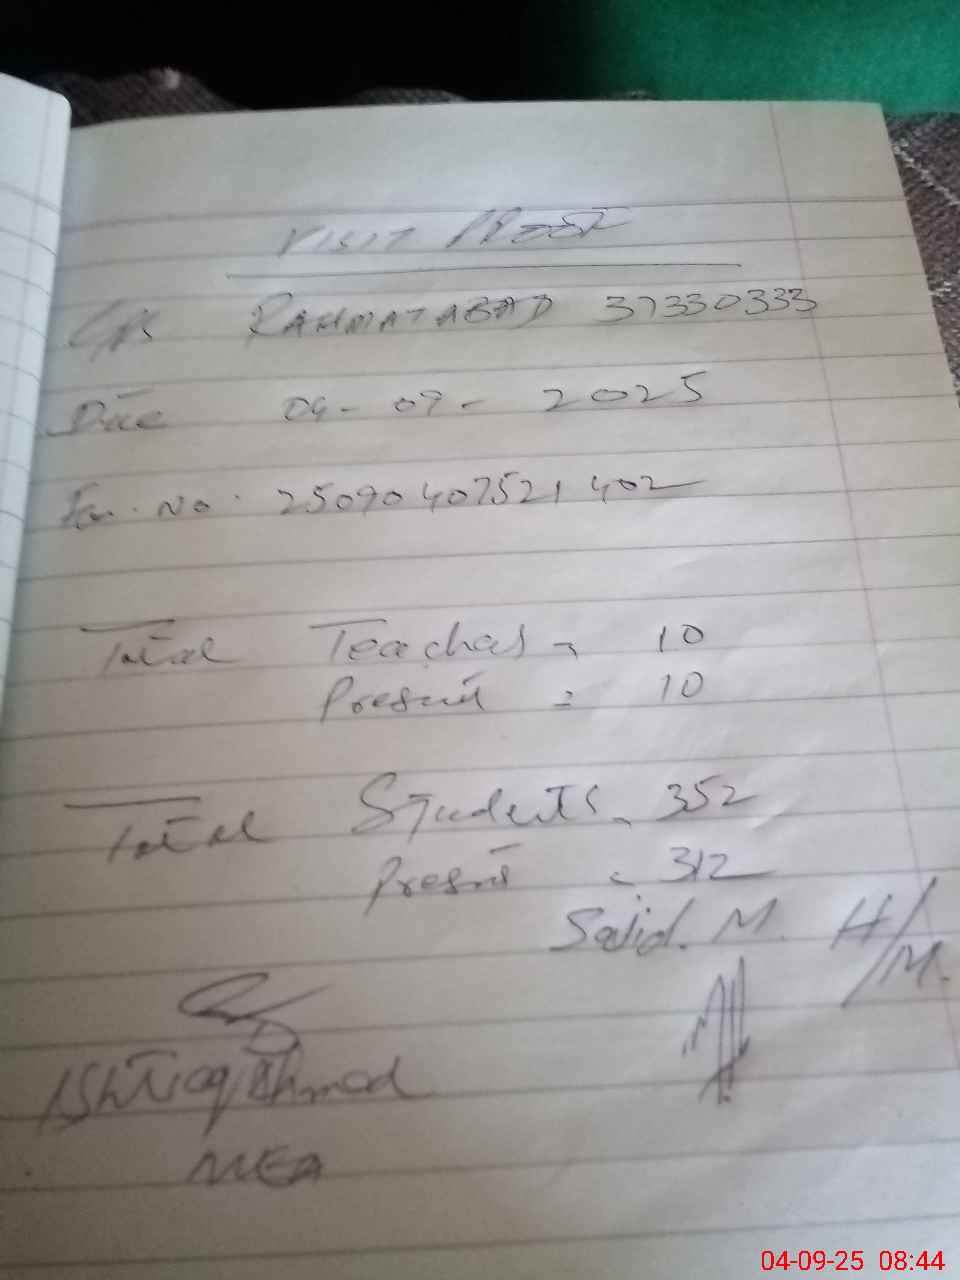 VISIT PROOF
GPS RAHMATABAD 37330333
Date 04-09-2025
No. 25090407521402
Total Teachers = 10
Present = 10
Total Students = 352
Present = 312
Sajid. M. H/M.
Ishtiaq Ahmed
MEA
04-09-25 08:44